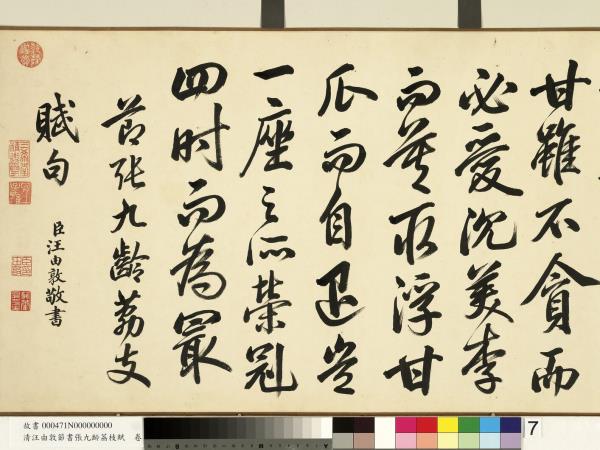 甘雖不貪而
必愛沉美李
而莫取浮甘
瓜而自退豈
一座之所榮冠
四时而為最
節張九齡荔支
賦句
臣汪由敦敬書
故書 000471N000000000
清汪由敦節書張九齡荔枝賦 卷
7